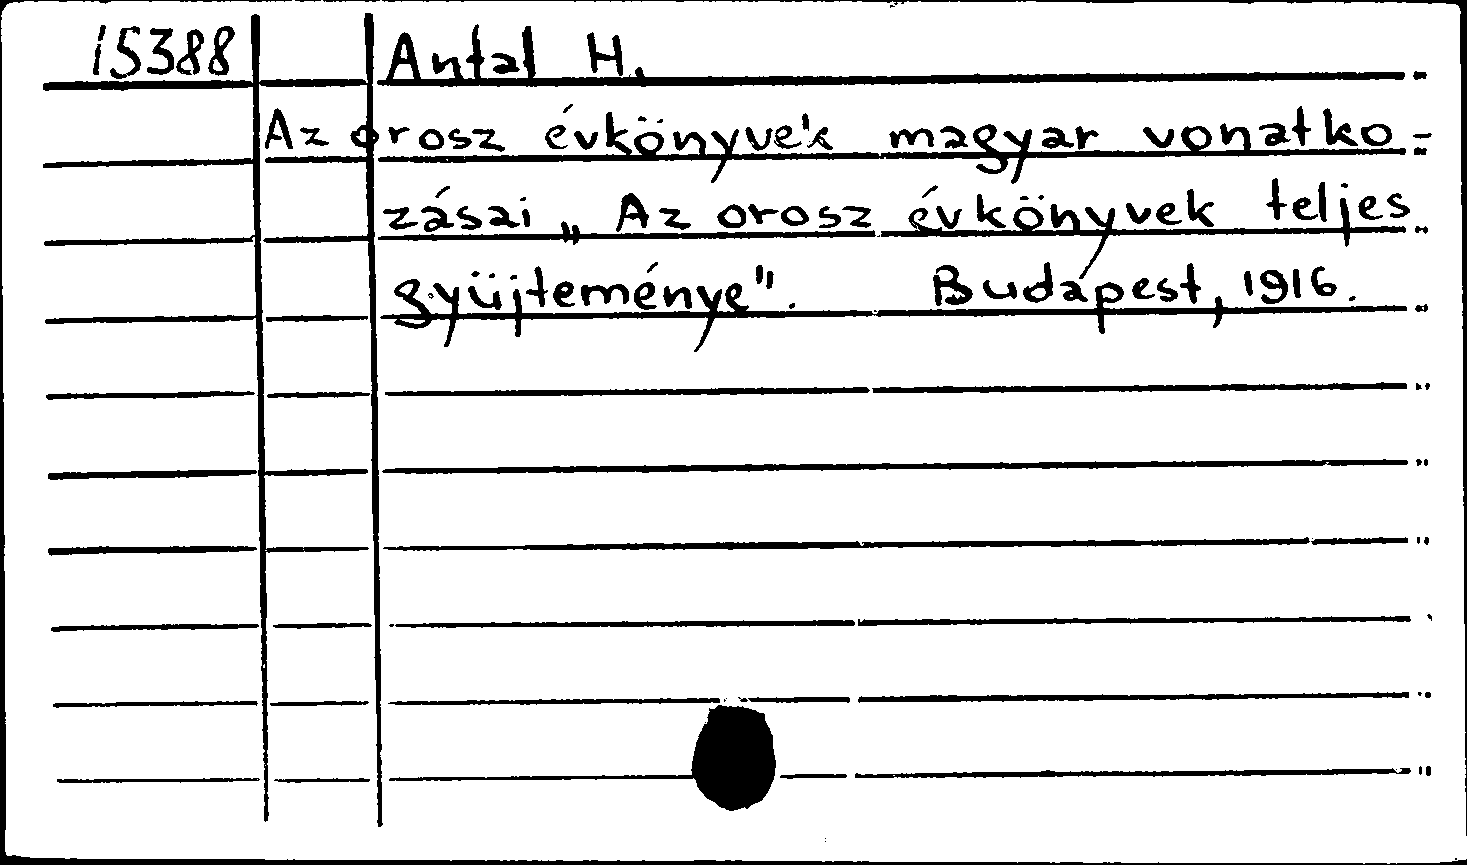 15388 Antal H.
Az orosz évkönyvek magyar vonatko-
zásai „Az orosz évkönyvek teljes
gyüjteménye". Budapest, 1916.